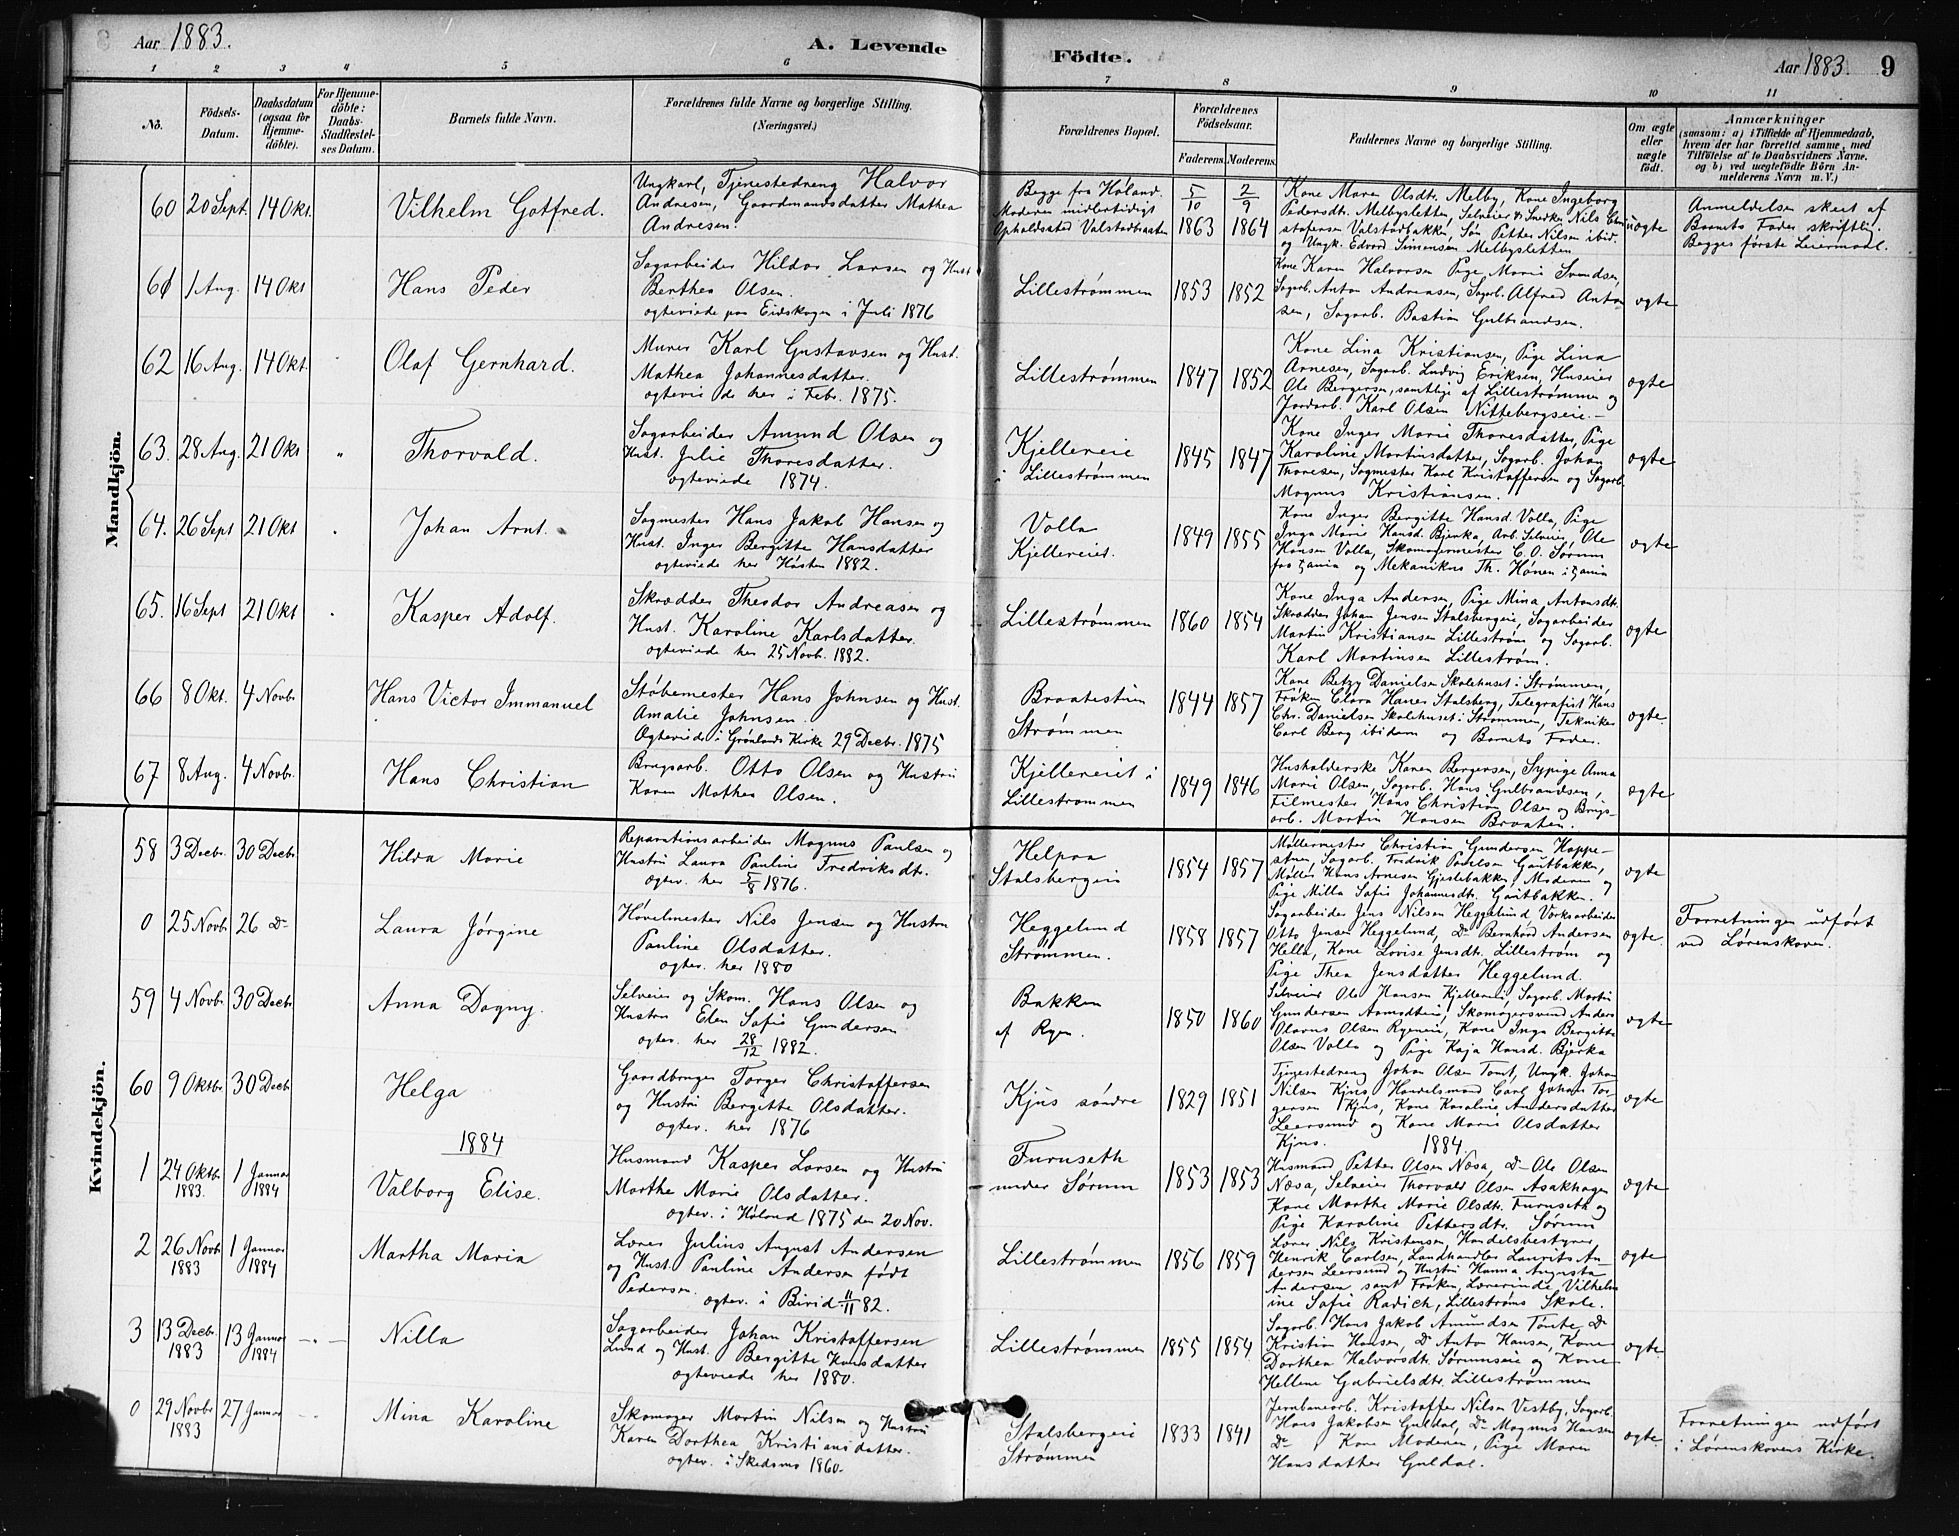 Aar 1883.
A. Levende Födte.
Aar 1883. 9
1 2 3 4 5 6 7 8 9 10 11
No.
Födsels-Datum.
Daabsdatum (ogsaa for Hjemmedöbte).
For Hjemmedöbte: Daabs-Stadfæstelses Datum.
Barnets fulde Navn.
Forældrenes fulde Navne og borgerlige Stilling. (Næringsvei.)
Forældrenes Bopæl.
Forældrenes Födselsaar.
Faderens. Moderens.
Faddernes Navne og borgerlige Stilling.
Om ægte eller uægte födt.
Anmærkninger (saasom: a) i Tilfælde af Hjemmedaab, hvem der har forrettet samme, med Tilföielse af to Daabsvidners Navne. og b) ved uægtefödte Börn Anmelderens Navn m. V.)
Mandkjön.
60 20 Sept. 14 Okt. Vilhelm Gotfred.
Ungkarl, Tjenestedreng Halvor
Andresen, Gaardmandsdatter Mathea
Andresen.
Begge fra Høland.
Moderen midlertidigt
Opholdssted Valstadbraaten
5/10 1863 2/9 1864
Kone Maren Olsdtr. Melby, Kone Ingeborg
Pedersdtr. Melbysletten, Selveier & Snedker Nils Chri
stofersen Valstadbakken, Søn Petter Nilsen ibid.
og Ungk. Edvard Simensen Melbysletten
uægte
Anmeldelsen skeet af
Barnets Fader skriftlig.
Begges første Leiermaal.
61 1 Aug. 14 Okt Hans Peder
Sagarbeider Hildor Larsen og Hust
Berthea Olsen.
ægteviede paa Eidskogen i Juli 1876
Lillestrømmen 1853 1852
Kone Karen Halvorsen Pige Marie Svendsen,
Sagarb. Anton Andreasen, Sagarb. Alfred Anton
sen, Sagarb. Bastian Gulbrandsen.
ægte
62 16 Aug. 14 Okt. Olaf Gernhard.
Murer Karl Gustavsen og Hust.
Mathea Johannesdatter.
ægteviede her i Febr. 1875.
Lillestrømmen 1847 1852
Kone Lina Kristiansen, Pige Lina
Arnesen, Sagarb. Ludvig Eriksen, Huseier
Ole Bergersen, samtlige af Lillestrømmen og
Jordarb. Karl Olsen Nittebergseie.
ægte
63. 28 Aug. 21 Okt " Thorvald.
Sagarbeider Amund Olsen og
Hust. Julie Thoresdatter.
ægteviede 1874.
Kjellereie
i Lillestrømmen
1845 1847
Kone Inger Marie Thoresdatter, Pige
Karoline Martinsdatter, Sagarb. Johan
Thoresen, Sagmester Karl Kristoffersen og Sagarb.
Magnus Kristiansen.
ægte
64. 26 Sept 21 Okt Johan Arnt.
Sagmester Hans Jakob Hansen og
Hust. Inger Bergitte Hansdatter
ægteviede her Høsten 1882.
Volla
Kjellereiet.
1849 1855
Kone Inger Bergitte Hansd. Volla, Pige
Inga Marie Hansd. Bjerka, Arb. Selveier, Ole
Hansen Volla, Skomagermester C. O. Sørum
fra Xania og Mekanikus Th. Hønen i Xania
ægte
65. 16 Sept 21 Okt Kasper Adolf.
Skrædder Theodor Andreasen og
Hust. Karoline Karlsdatter.
ægteviede her 25 Novb. 1882.
Lillestrømmen 1860 1854
Kone Inga Andersen, Pige Mina Antonsdt.
Skrædder Johan Jensen Stalsbergeie, Sagarbeider
Martin Kristiansen Lillestrøm og Sagarb.
Karl Martinsen Lillestrøm.
ægte
66 8 Okt. 4 Novbr Hans Victor Immanuel
Støbemester Hans Johnsen og Hust.
Amalie Johnsen.
Ægteviede i Grønlands Kirke 29 Decbr. 1875
Braatestun
Strømmen
1844 1857
Kone Betzy Danielsen Skolehuset i Strømmen,
Frøken Clara Hansen Stalsberg, Telegrafist Hans
Chr. Danielsen Skolehuset i Strømmen, Tekniker
Carl Berg ibidem og Barnets Fader.
ægte
67 8 Aug. 4 Novbr. Hans Christian
Brugsarb. Otto Olsen og Hustru
Karen Mathea Olsen.
Kjellereiet i
Lillestrømmen
1849 1846
Husholderske Karen Bergersen, Sypige Anna
Marie Olsen, Sagarb. Hans Gulbrandsen,
Filmester Hans Christian Olsen og Brugs-
arb. Martin Hansen Braaten.
ægte
Kvindekjön.
58 3 Decbr. 30 Decbr Hilda Marie
Reparationsarbeider Magnus Paulsen og
Hustru Laura Pauline Fredriksdt.
ægtev. her 5/8 1876.
Helpaa
Stalsbergeie
1854 1857
Møllermester Christian Gundersen Hoppe-
stuen, Sagarb. Fredrik Poulsen Gautbakken,
Møller Hans Arnesen Gjeslebakken, Moderen og
Pige Milla Sofie Johannesdt. Gautbakken.
ægte
0 25 Novbr 26 D– Laura Jørgine
Høvelmester Nils Jensen og Hustru
Pauline Olsdatter.
ægtev. her 1880
Heggelund
Strømmen.
1858 1857
Sagarbeider Jens Nilsen Heggelund, Værksarbeider
Otto Jensen Heggelund, D– Bernhard Andersen
Hella, Kone Lovise Jensdt. Lillestrøm og
Pige Thea Jensdatter Heggelund.
ægte.
Forretningen udført
ved Lørenskoven.
59 4 Novbr 30 Decbr Anna Dagny.
Selveier og Skom. Hans Olsen og
Hustru Elen Sofie Gundersen
ægtev. her 28/12 1882.
Bakken
af Ryen.
1850 1860
Selveier Ole Hansen Kjellereie, Sagarb. Martin
Gundersen Aamodteie, Skomagersvend Anders
Olavus Olsen Ryeneie, Kone Inga Bergitte
Olsen Volla og Pige Kaja Hansd. Bjerka
ægte
60 9 Oktbr 30 Decbr Helga
Gaardbruger Torger Christoffersen
og Hustru Bergitte Olsdatter.
ægtev. her 1876
Kjus søndre 1829 1851
Tjenestedreng Johan Olsen Tomt, Ungk. Johan
Nilsen Kjus, Handelsmand Carl Johan Tor-
gersen Kjus, Kone Karoline Andersdatter
Leersund og Kone Marie Olsdatter
Kjus.
ægte
1884 1884.
1 24 Oktbr 1883. 1 Januar 1884 Valborg Elise.
Husmand Kasper Larsen og Hustru
Marthe Marie Olsdatter.
ægtev. i Høland 1875 den 20 Nov.
Furuseth
under Sørum
1853 1853
Husmand Petter Olsen Næsa, D– Ole Olsen
Næsa, Selveier Thorvald Olsen Asakhagen
Kone Marthe Marie Olsdt. Furuseth og
Pige Karoline Pettersdt. Sørum
ægte
2 26 Novb 1883 1 Januar 1884 Martha Maria
Lærer Julius August Andersen
og Hust. Pauline Andersen født
Pedersen.
ægtev. i Birid 11/11 82.
Lillestrømmen 1856 1859
Lærer Nils Kristensen, Handelsbestyrer
Henrik Carlsen, Landhandler Laurits An-
dersen Leersund og Hustru Hanna Augusta
Andersen samt Frøken, Lærerinde Vilhelm
ine Sofie Radich, Lillestrøms Skole.
ægte
3 13 Decbr. 1883 13 Januar 1884 Nilla
Sagarbeider Johan Kristoffersen
Lund og Hust. Bergitte Hansdatter
ægteviede her 1880.
Lillestrømmen 1855 1854
Sagarb. Hans Jakob Amundsen Tørite, D–
Kristian Hansen, D– Anton Hansen, Kone
Dorthea Halvorsdt. Sørumseie og Kone
Hellene Gabrielsdt. Lillestrømmen
ægte.
0 29 Novbr 1883 27 Januar Mina Karoline
Skomager Martin Nilsen og Hustru
Karen Dorthea Kristiansdatter.
ægtev. i Skedsmo 1860.
Stalsbergeie
Strømmen
1833 1841
Jernbanearb. Kristoffer Nilsen Vestby, Sagarb.
Hans Jakobsen Guldal, D– Magnus Hansen
D– Kone Moderen, Pige Maren
Hansdatter Guldal.
ægte.
Forretningen udført
i Lørenskovens Kirke.